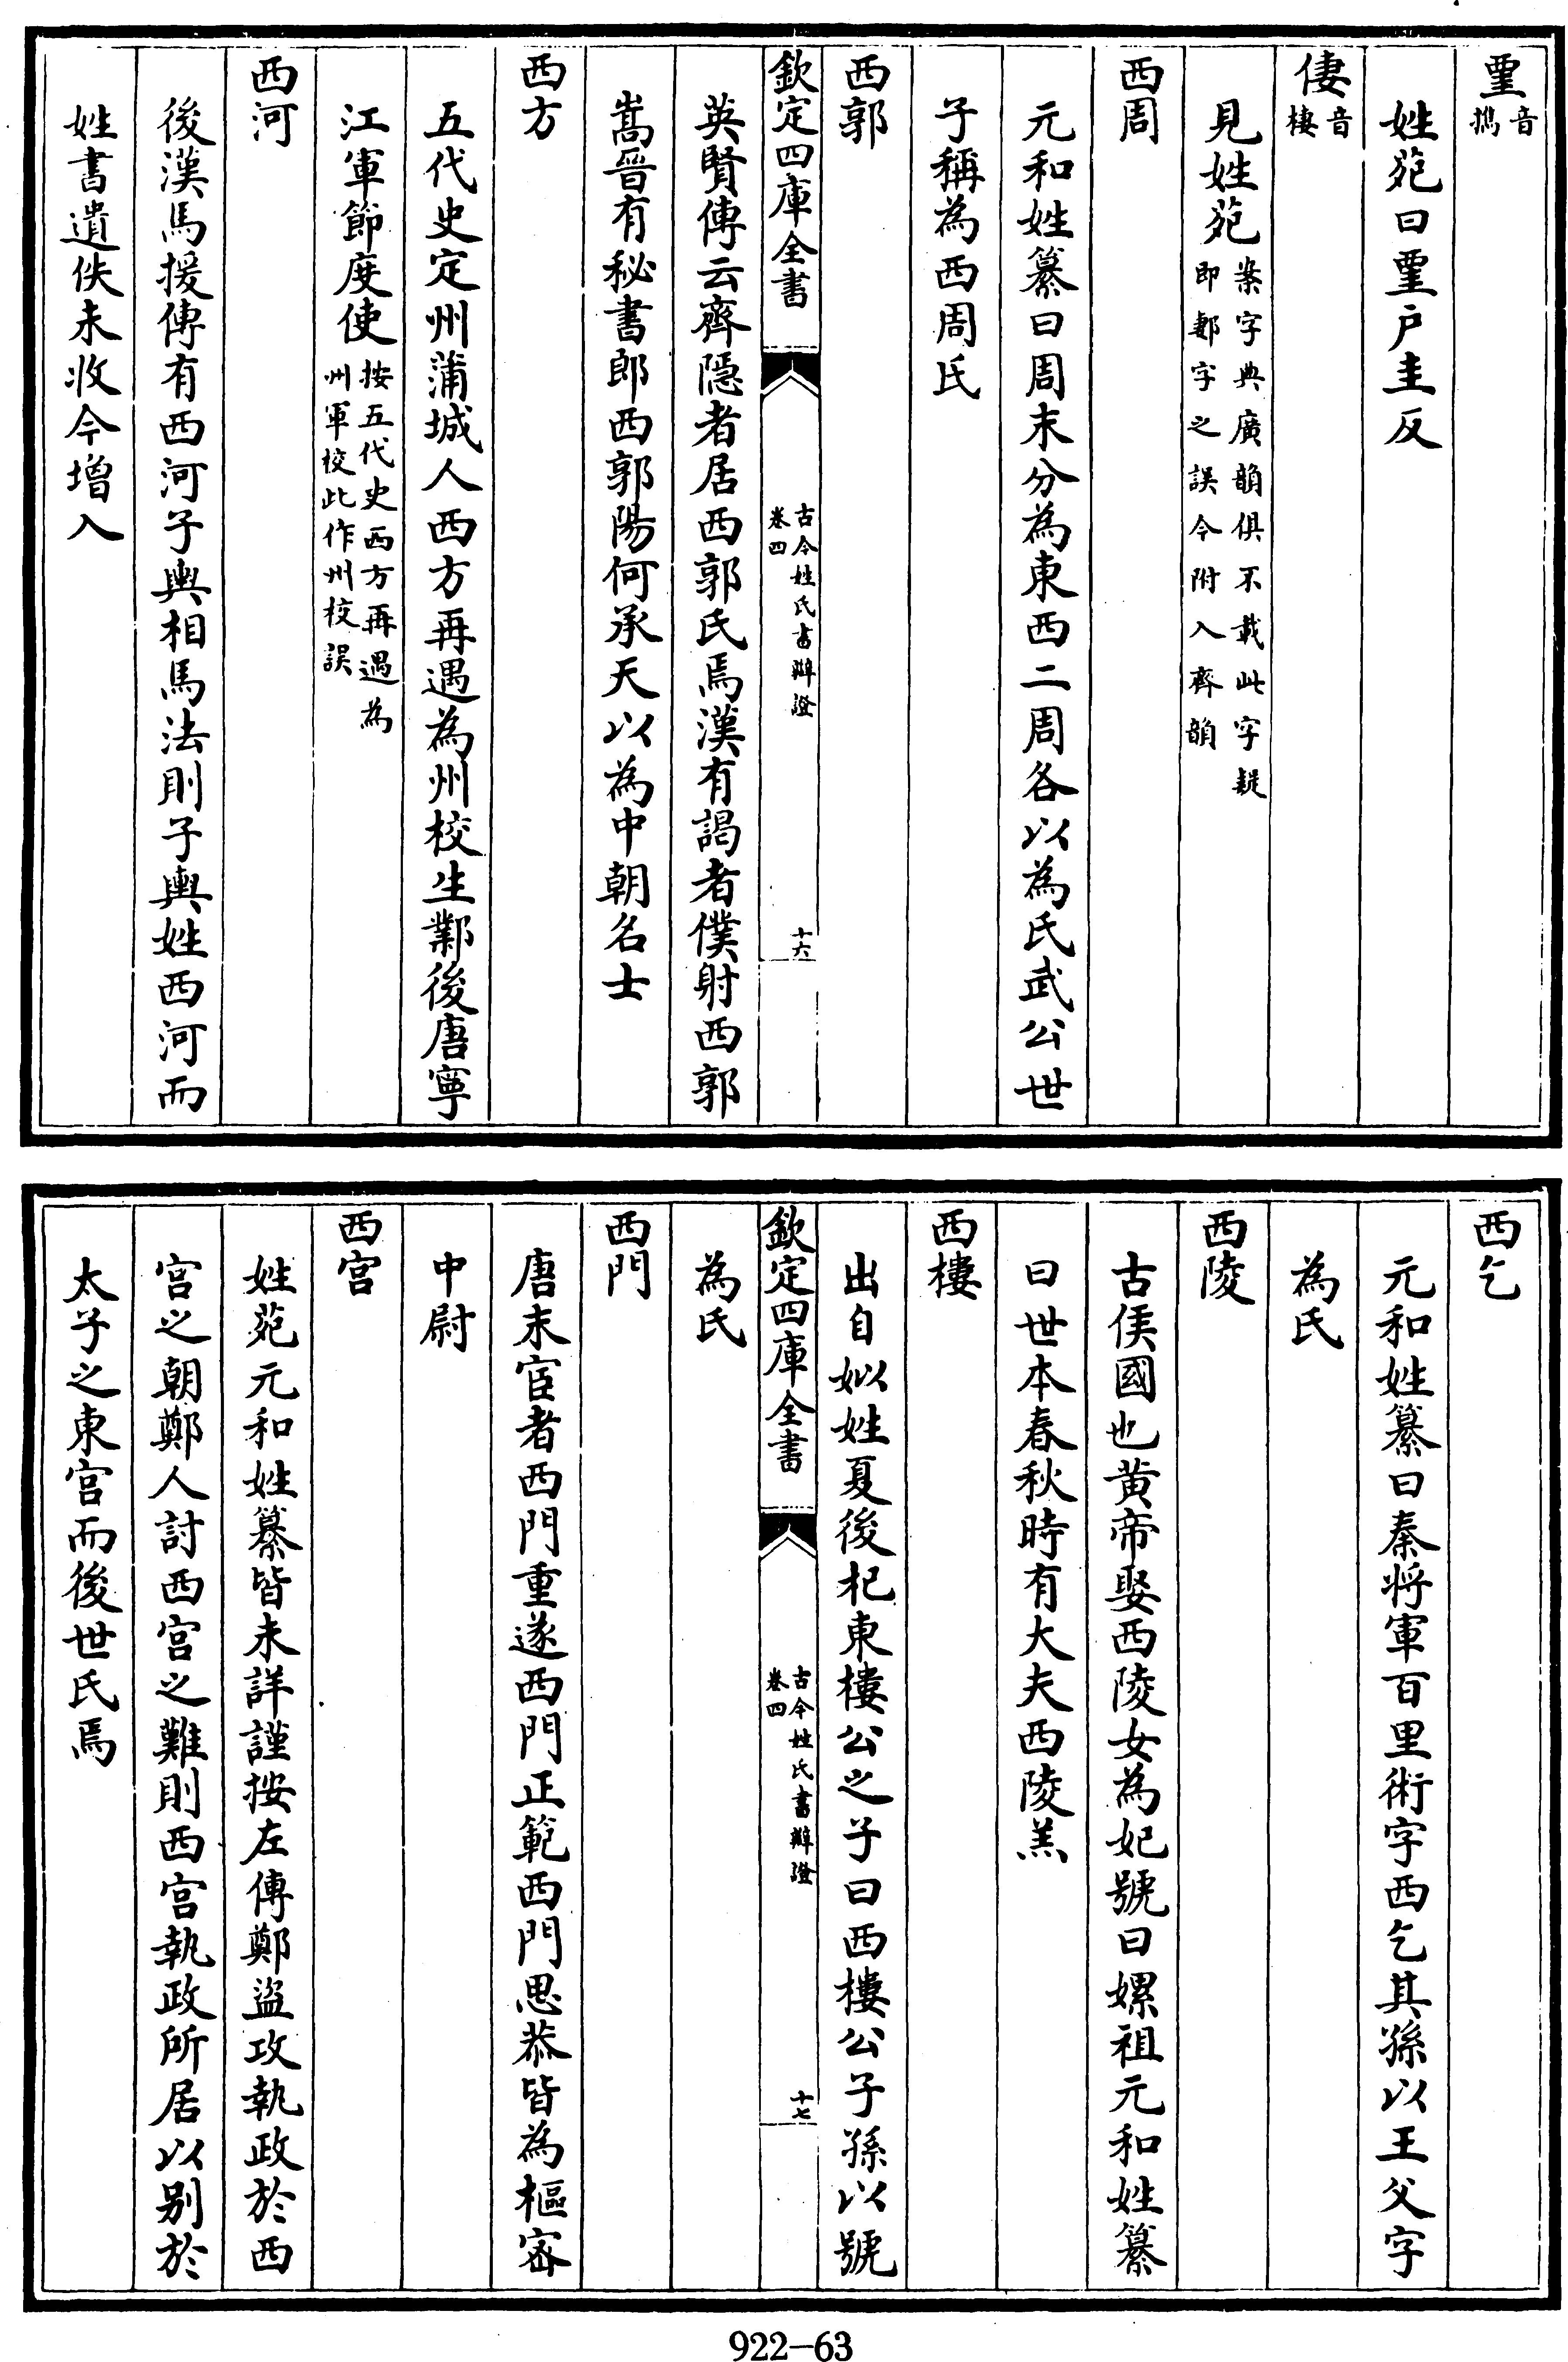 䙲音攜
姓苑曰䙲户圭反
㥄音棲
見姓苑案字典廣韻俱不載此字疑即郪字之誤今附入齊韻
西周
元和姓纂曰周末分為東西二周各以為氏武公世
子稱為西周氏
西郭
欽定四庫全書 古今姓氏書辯證 卷四 十六
英賢傳云齊隱者居西郭氏焉漢有謁者僕射西郭
嵩晉有秘書郎西郭陽何承天以為中朝名士
西方
五代史定州蒲城人西方再遇為州校生鄴後唐寧
江軍節度使按五代史西方再遇為州軍校此作州校誤
西河
後漢馬援傳有西河子輿相馬法則子輿姓西河而
姓書遺佚未收今增入
西乞
元和姓纂曰秦將軍百里術字西乞其孫以王父字
為氏
西陵
古侯國也黃帝娶西陵女為妃號曰嫘祖元和姓纂
曰世本春秋時有大夫西陵羔
西樓
出自姒姓夏後杞東樓公之子曰西樓公子孫以號
欽定四庫全書 古今姓氏書辯證 卷四 十七
為氏
西門
唐末宦者西門重遂西門正範西門思恭皆為樞密
中尉
西宮
姓苑元和姓纂皆未詳謹按左傳鄭盜攻執政於西
宮之朝鄭人討西宮之難則西宮執政所居以别於
太子之東宮而後世氏焉
922-63